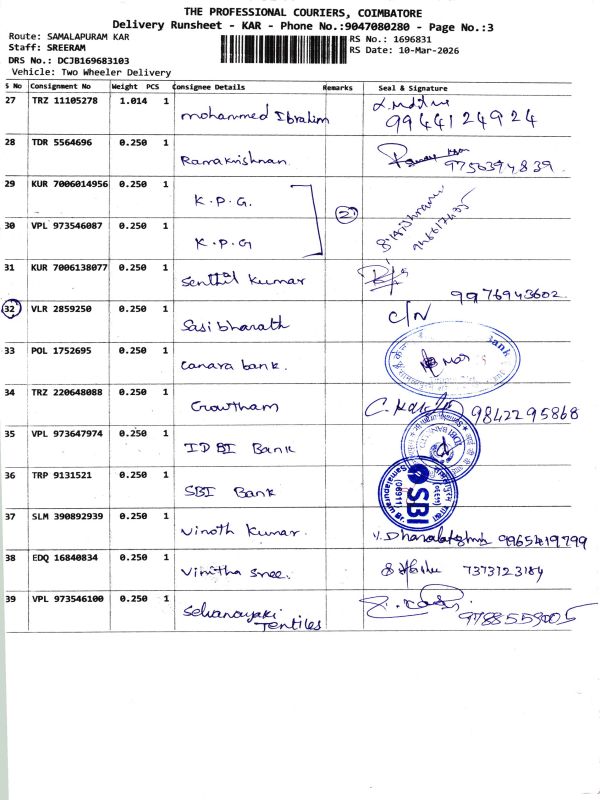 THE PROFESSIONAL COURIERS, COIMBATORE
Delivery Runsheet - KAR - Phone No.:9047080280 - Page No.:3
Route: SAMALAPURAM KAR
RS No.: 1696831
Staff: SREERAM
RS Date: 10-Mar-2026
DRS No.: DCJB169683103
Vehicle: Two Wheeler Delivery
S No Consignment No Weight PCS Consignee Details Remarks Seal & Signature
27 TRZ 11105278 1.014 1 mohammed Ibrahim 9944124924
28 TDR 5564696 0.250 1 Ramakrishnan. 9756394839.
29 KUR 7006014956 0.250 1 K.P.G.
2
30 VPL 973546087 0.250 1 K.P.G
31 KUR 7006138077 0.250 1 Senthil Kumar 9976943602
32 VLR 2859250 0.250 1 Sasi bharath C/N
33 POL 1752695 0.250 1 Canara bank. Bank
34 TRZ 220648088 0.250 1 Gowtham 9842295868
35 VPL 973647974 0.250 1 IDBI Bank
36 TRP 9131521 0.250 1 SBI Bank SBI (06911)
37 SLM 390892939 0.250 1 Vinoth Kumar. 9965419799
38 EDQ 16840834 0.250 1 Vinitha Sree. 7373123184
39 VPL 973546100 0.250 1 Selvanayaki Textiles 9788559005